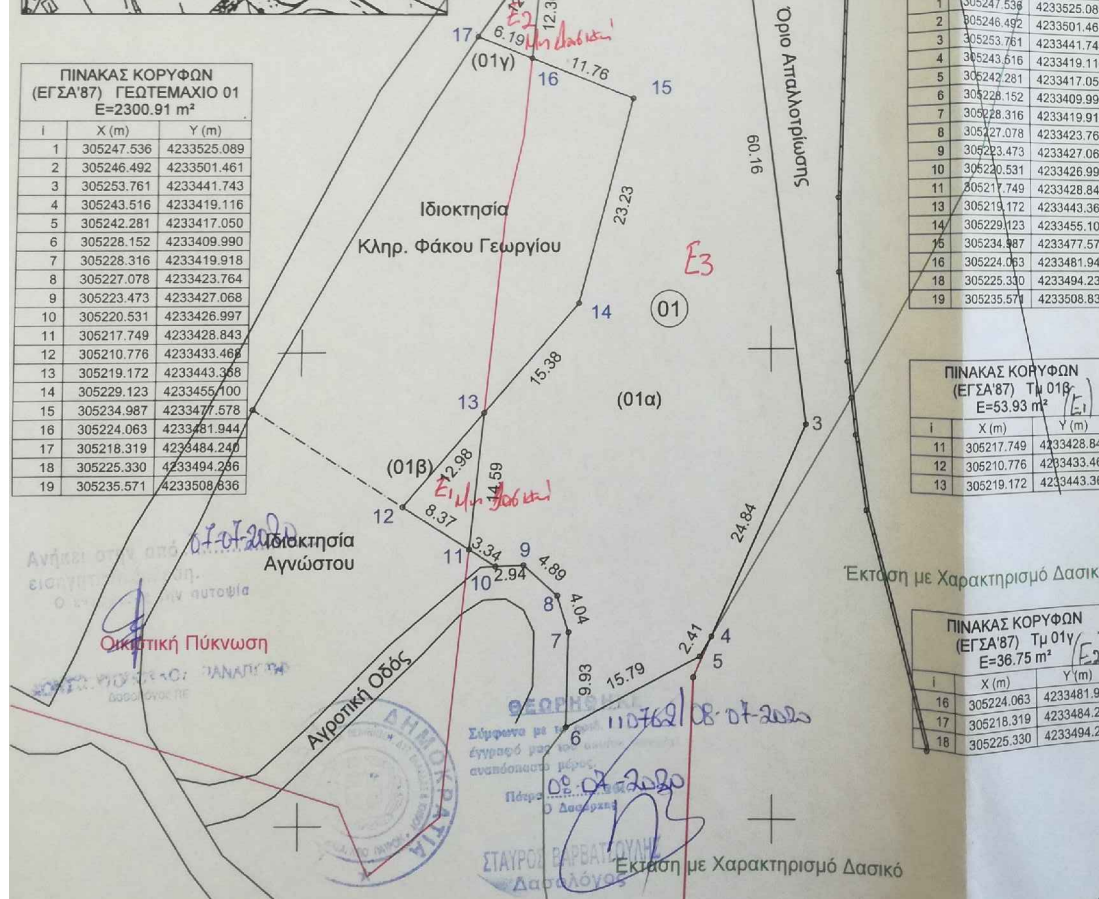 ΠΙΝΑΚΑΣ ΚΟΡΥΦΩΝ
(ΕΓΣΑ'87) ΓΕΩΤΕΜΑΧΙΟ 01
Ε=2300.91 m²
i X (m) Y (m)
1 305247.536 4233525.089
2 305246.492 4233501.461
3 305253.761 4233441.743
4 305243.516 4233419.116
5 305242.281 4233417.050
6 305228.152 4233409.990
7 305228.316 4233419.918
8 305227.078 4233423.764
9 305223.473 4233427.068
10 305220.531 4233426.997
11 305217.749 4233428.843
12 305210.776 4233433.468
13 305219.172 4233443.368
14 305229.123 4233455.100
15 305234.987 4233477.578
16 305224.063 4233481.944
17 305218.319 4233484.240
18 305225.330 4233494.236
19 305235.571 4233508.836
Ε2
Μη Δασική
12.3
17
6.19
(01γ)
16
11.76
15
60.16
Όριο Απαλλοτρίωσης
23.23
Ιδιοκτησία
Κληρ. Φάκου Γεωργίου
Ε3
14
01
15.38
(01α)
13
3
(01β)
12.98
14.59
Ε1 Μη Δασική
12
8.37
11
3.34
10
2.94
9
4.89
8
4.04
7
9.93
6
15.79
2.41
5
4
24.84
Ιδιοκτησία
Αγνώστου
07-07-2020
Οικιστική Πύκνωση
Αγροτική Οδός
ΔΗΜΟΚΡΑΤΙΑ
ΘΕΩΡΗΘΗΚΕ
Σύμφωνα με
110762/08-07-2020
έγγραφό μας του
αναπόσπαστο μέρος.
-07-2020
Ο Δασάρχης
ΣΤΑΥΡΟΣ ΒΑΡΒΑΤΣΟΥΛΗΣ
Δασολόγος
Έκταση με Χαρακτηρισμό Δασικό
1 305247.536 4233525.08
2 305246.492 4233501.46
3 305253.761 4233441.74
4 305243.516 4233419.11
5 305242.281 4233417.05
6 305228.152 4233409.99
7 305228.316 4233419.91
8 305227.078 4233423.76
9 305223.473 4233427.06
10 305220.531 4233426.99
11 305217.749 4233428.84
13 305219.172 4233443.36
14 305229.123 4233455.10
15 305234.987 4233477.57
16 305224.063 4233481.94
18 305225.330 4233494.23
19 305235.571 4233508.83
ΠΙΝΑΚΑΣ ΚΟΡΥΦΩΝ
(ΕΓΣΑ'87) Τμ 01β
Ε=53.93 m² (Ε1
i X (m) Y (m)
11 305217.749 4233428.84
12 305210.776 4233433.46
13 305219.172 4233443.36
Έκταση με Χαρακτηρισμό Δασικ
ΠΙΝΑΚΑΣ ΚΟΡΥΦΩΝ
(ΕΓΣΑ'87) Τμ 01γ
Ε=36.75 m² (Ε2
i X (m) Y (m)
16 305224.063 4233481.9
17 305218.319 4233484.2
18 305225.330 4233494.2